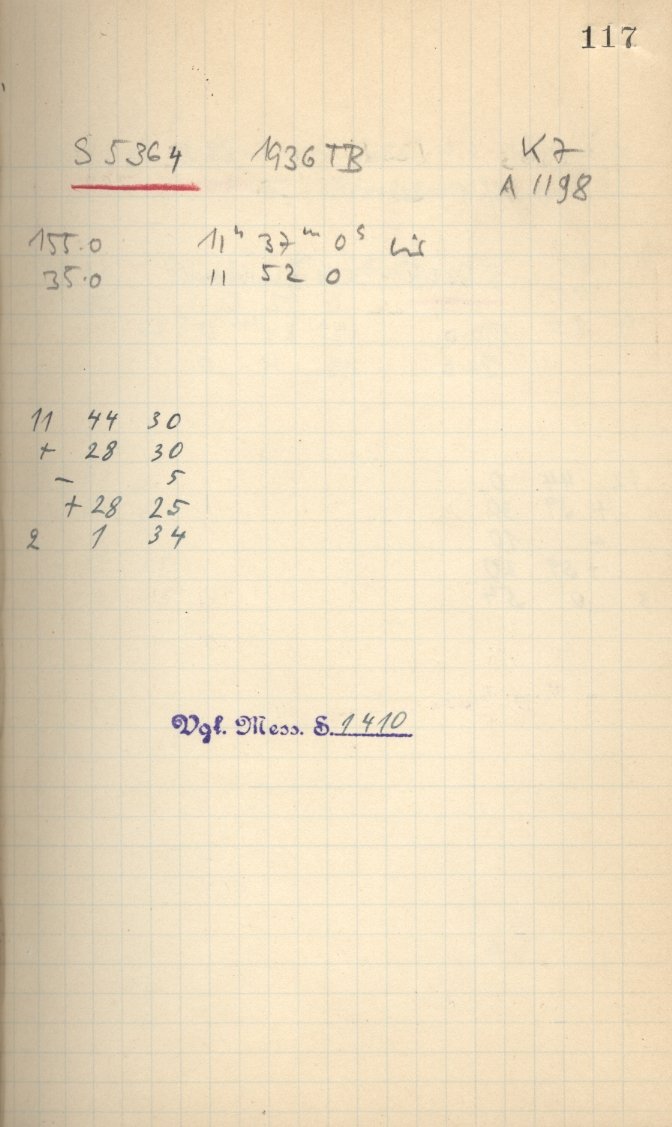 117
S 5364 1936 TB K 7
A 1198
155.0 11h 37m 0s bis
35.0 11 52 0
11 44 30
+ 28 30
- 5
+ 28 25
2 1 34
Vgl. Mess. S. 1410